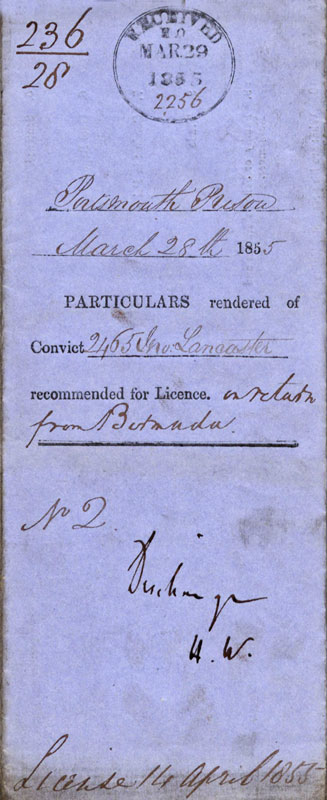 236
28
RECEIVED
H.O
MAR 29
1855
2256
Portsmouth Prison
March 28th 1855
PARTICULARS rendered of
Convict 2465 Jno. Lancaster
recommended for Licence. on return
from Bermuda.
No 2.
Discharge
H. W.
License 14 April 1855